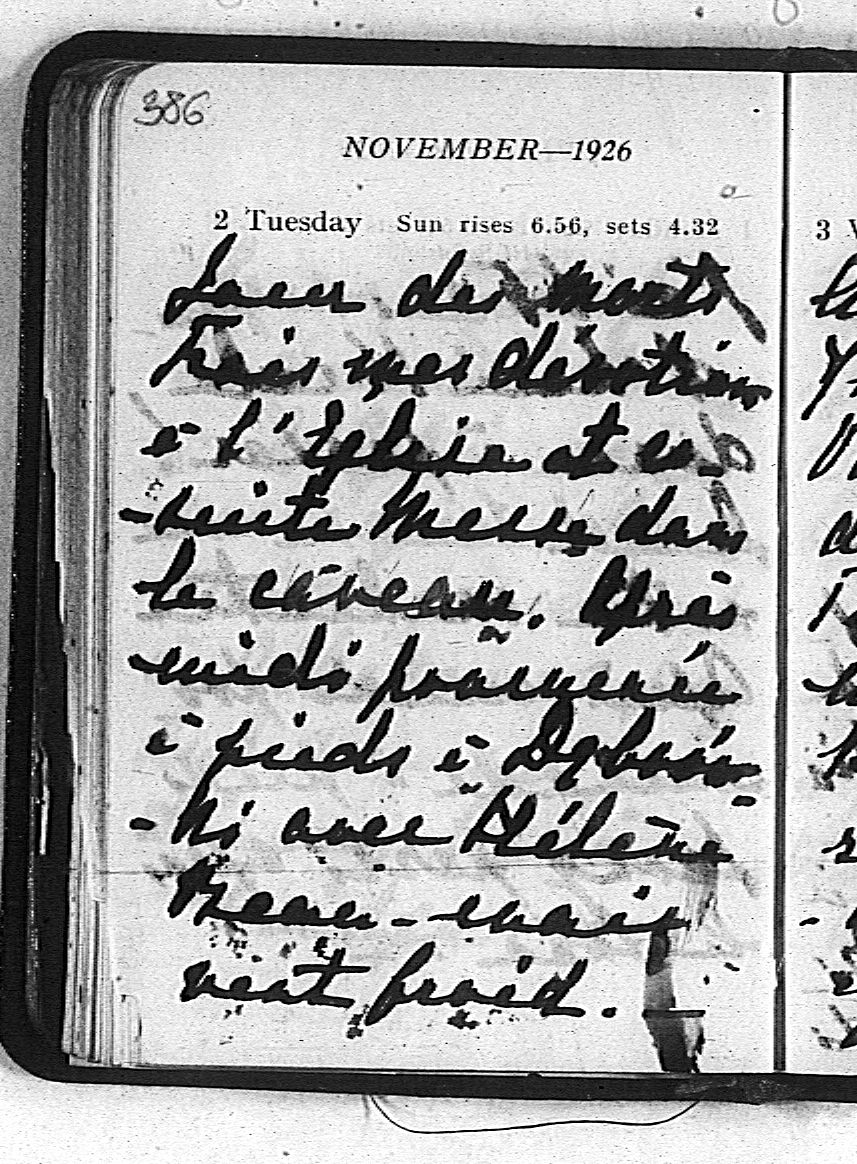 386
NOVEMBER—1926
2 Tuesday Sun rises 6.56, sets 4.32
3
Jour des Morts
Fais mes dévotions
à l'Eglise et en-
-suite Messe dans
le caveau. Après
midi promenée
à pieds à Dębow-
-ki avec Hélène
Beau - mais
vent froid. —